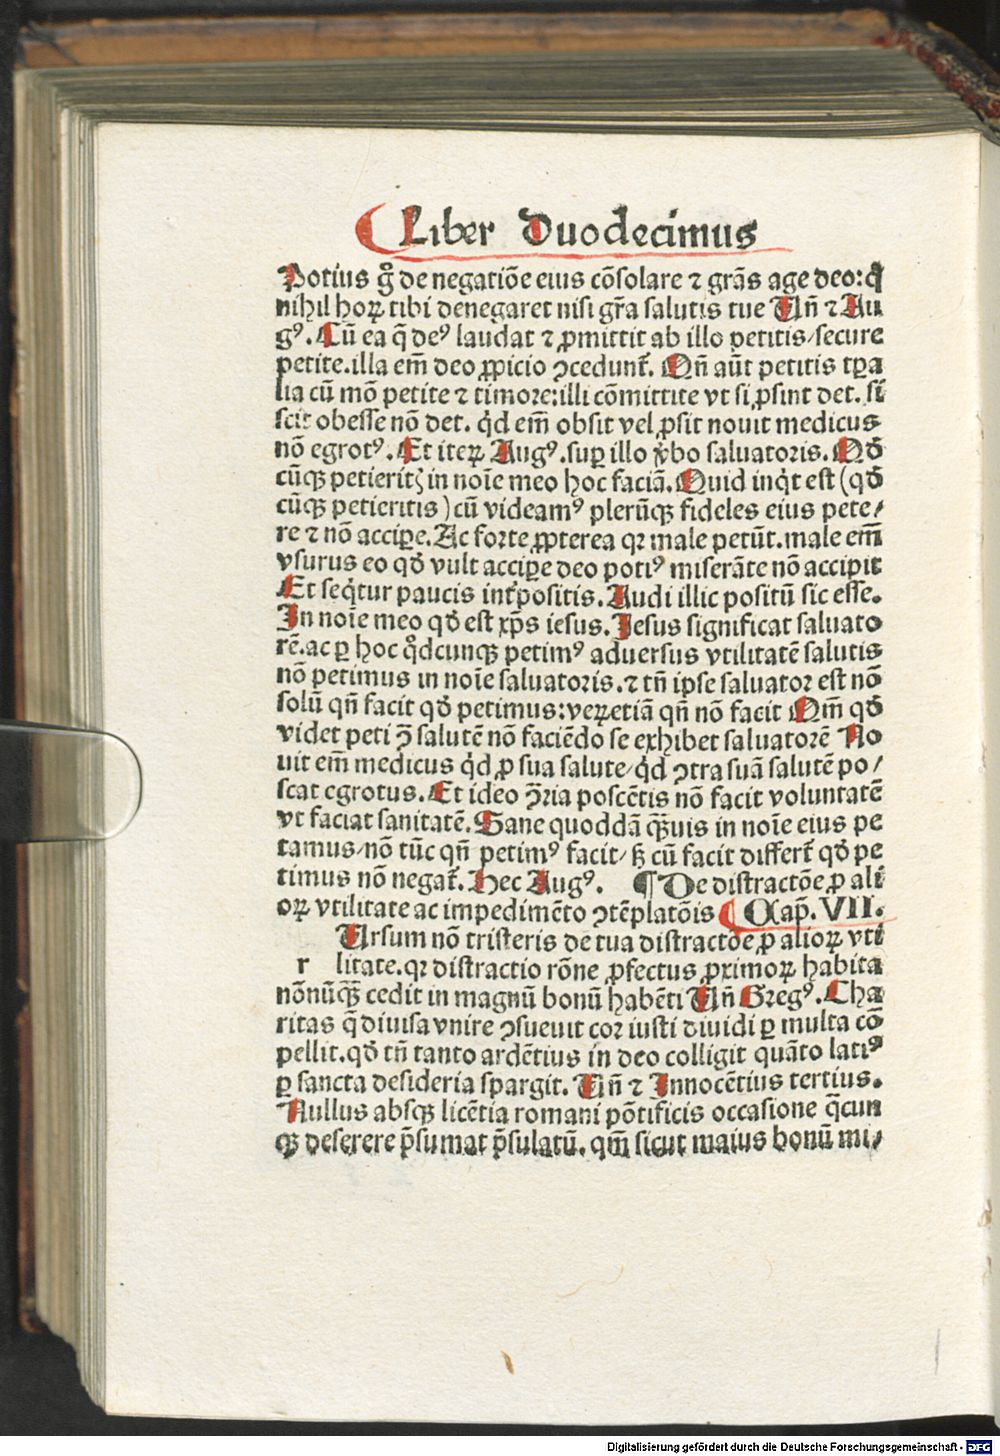 Liber Duodecimus
Potius gͦ de negatiõe eius cõsolare ⁊ grãs age deo: ꝙ
nihil hoꝝ tibi denegaret nisi gr̃a salutis tue Uñ ⁊ Au
gꝰ. Cũ ea q̃ deꝰ laudat ⁊ ꝓmittit ab illo petitis/secure
petite.illa em̃ deo ꝓpicio ꝯcedunt̃. Qñ aũt petitis tꝑa
lia cũ mõ petite ⁊ timore:illi cõmittite vt si ꝓsint det. si
scit obesse nõ det. qͥd em̃ obsit vel ꝓsit nouit medicus
nõ egrotꝰ. Et iteꝝ Augꝰ.suꝑ illo v̾bo saluatoris. Qď
cũqꝫ petieritꝭ in noĩe meo hoc faciã. Quid inqͥt est (qď
cũqꝫ petieritis) cũ videamꝰ plerũqꝫ fideles eius pete/
re ⁊ nõ acciꝑe. Ac forte ꝓpterea qꝛ male petũt.male em̃
vsurus eo qď vult acciꝑe deo potiꝰ miserãte nõ accipit
Et seqͥtur paucis int̾positis. Audi illic positũ sic esse.
In noĩe meo qď est xp̃s iesus. Iesus significat saluato
rẽ.ac ꝑ hoc qͦdcunqꝫ petimꝰ aduersus vtilitatẽ salutis
nõ petimus in noĩe saluatoris.⁊ tñ ipse saluator est nõ
solũ qñ facit qď petimus:veꝝetiã qñ nõ facit Qm̃ qď
videt peti ꝯ̃ salutẽ nõ faciẽdo se exhibet saluatorẽ No
uit em̃ medicus qͥd ꝓ sua salute/qͥd ꝯtra suã salutẽ po/
scat egrotus. Et ideo ꝯ̃ria poscẽtis nõ facit voluntatẽ
vt faciat sanitatẽ. Sane quoddã qꝫ̃uis in noĩe eius pe
tamus/nõ tũc qñ petimꝰ facit/ ꝭꝫ cũ facit differt̃ qď pe
timus nõ negat̃. Hec Augꝰ. ¶ De distractõe ꝓ ali
oꝝ vtilitate ac impedimẽto ꝯtẽplatõis Cap̃. VII.
Ursum nõ tristeris de tua distractõe ꝓ alioꝝ vti
r litate.qꝛ distractio rõne ꝓfectus ꝓximoꝝ habita
nõnũqꝫ̃ cedit in magnũ bonũ habẽti Uñ Gregꝰ. Cha
ritas q̃ diuisa vnire ꝯsueuit cor iusti diuidi ꝑ multa cõ
pellit.qď tñ tanto ardẽtius in deo colligit quãto latiꝰ
ꝑ sancta desideria spargit. Uñ ⁊ Innocẽtius tertius.
Nullus absqꝫ licẽtia romani põtificis occasione q̃cun
qꝫ deserere p̃sumat p̃sulatũ. qm̃ sicut maius bonũ mi/
Digitalisierung gefördert durch die Deutsche Forschungsgemeinschaft - DFG